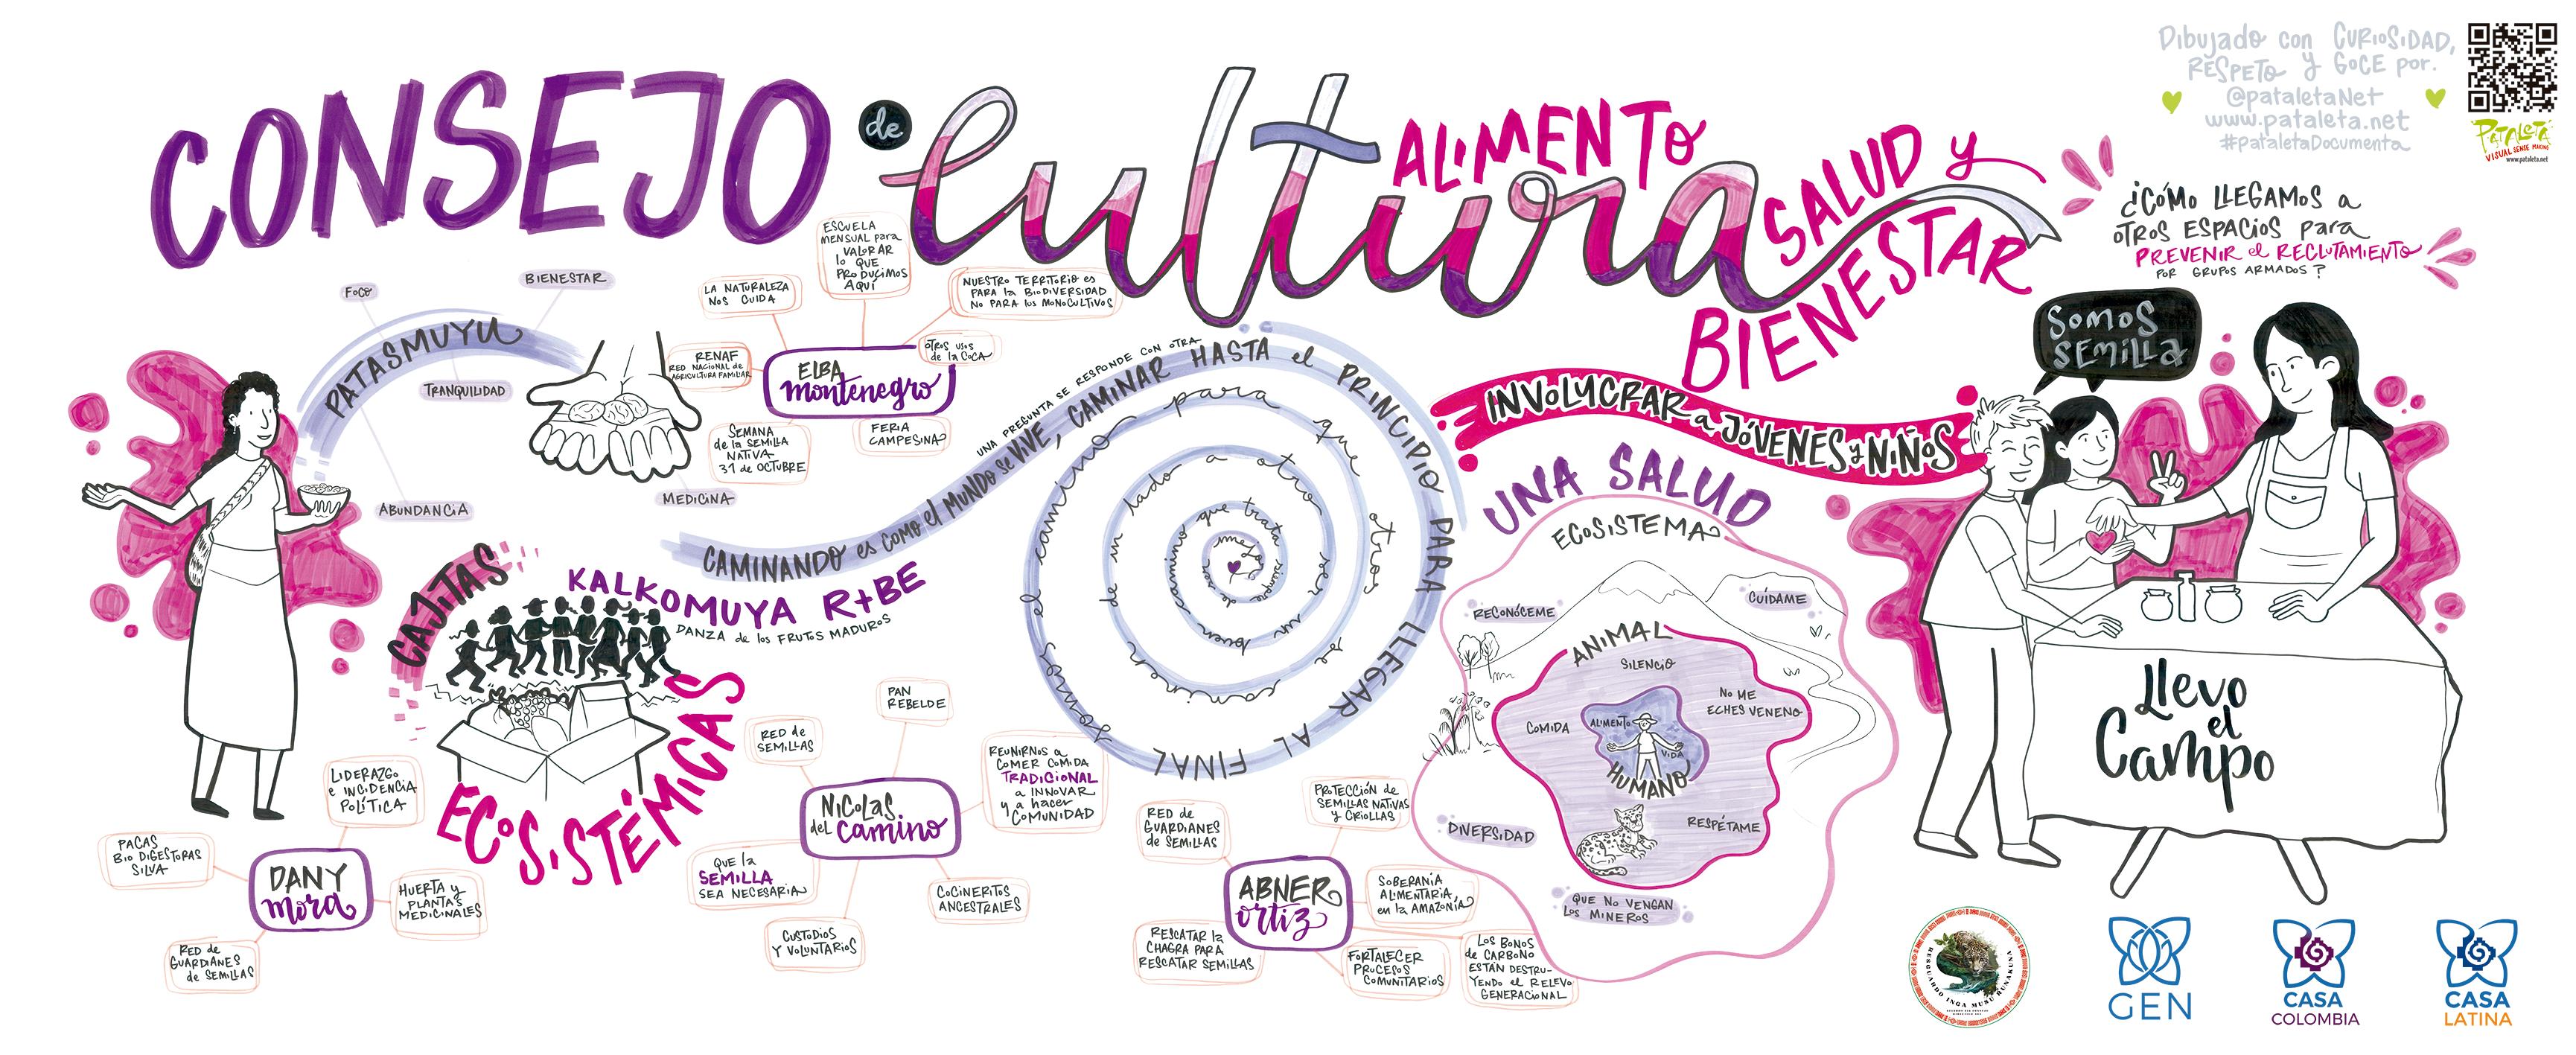 CONSEJO
de
cultura
ALIMENTO
SALUD y
BIENESTAR
Dibujado con CURIOSIDAD,
RESPETO y GOCE por:
@pataletaNet
www.pataleta.net
#pataletaDocumenta
PATALETA
VISUAL SENSE MAKING
www.pataleta.net
¿CÓMO LLEGAMOS a
OTROS ESPACIOS para
PREVENIR el RECLUTAMIENTO
POR GRUPOS ARMADOS?
SOMOS
SEMILLA
FOCO
BIENESTAR
PATASMUYU
TRANQUILIDAD
ABUNDANCIA
MEDICINA
LA NATURALEZA
NOS CUIDA
ESCUELA
MENSUAL para
VALORAR
lo QUE
PRODUCIMOS
AQUÍ
NUESTRO TERRITORIO es
PARA la BIODIVERSIDAD
NO PARA los MONOCULTIVOS
OTROS USOS
de la COCA
RENAF
RED NACIONAL de
AGRICULTURA FAMILIAR
ELBA
montenegro
SEMANA
de la SEMILLA
NATIVA
31 de OCTUBRE
FERIA
CAMPESINA
UNA PREGUNTA SE RESPONDE CON OTRA
CAMINANDO es COMO el MUNDO se VIVE, CAMINAR HASTA el PRINCIPIO PARA LLEGAR AL FINAL
Somos el camino para que otros se
caminen de un lado a otro ser un
buen camino que trata siempre de ser
mejor
INVOLUCRAR a JÓVENES y NIÑOS
UNA SALUD
ECOSISTEMA
RECONÓCEME
CUÍDAME
ANIMAL
SILENCIO
NO ME
ECHES VENENO
COMIDA
ALIMENTO
VIDA
HUMANO
RESPÉTAME
DIVERSIDAD
QUE NO VENGAN
LOS MINEROS
Llevo
el
Campo
CAJITAS
ECOSISTÉMICAS
KALKOMUYA R+BE
DANZA de los FRUTOS MADUROS
LIDERAZGO
e INCIDENCIA
POLÍTICA
PACAS
BIO DIGESTORAS
SILVA
DANY
mora
HUERTA y
PLANTAS
MEDICINALES
RED de
GUARDIANES
de SEMILLAS
PAN
REBELDE
RED de
SEMILLAS
REUNIRNOS a
COMER COMIDA
TRADICIONAL
a INNOVAR
y a hacer
COMUNIDAD
NICOLAS
del camino
QUE la
SEMILLA
SEA NECESARIA
COCINERITOS
ANCESTRALES
CUSTODIOS
Y VOLUNTARIOS
RED de
GUARDIANES
de SEMILLAS
PROTECCIÓN de
SEMILLAS NATIVAS
y CRIOLLAS
ABNER
ortiz
SOBERANÍA
ALIMENTARIA
en la AMAZONÍA
RESCATAR la
CHAGRA PARA
RESCATAR SEMILLAS
FORTALECER
PROCESOS
COMUNITARIOS
LOS BONOS
de CARBONO
ESTÁN DESTRU-
YENDO el RELEVO
GENERACIONAL
RESGUARDO INGA MUSU RUNAKUNA
GEN
CASA
COLOMBIA
CASA
LATINA